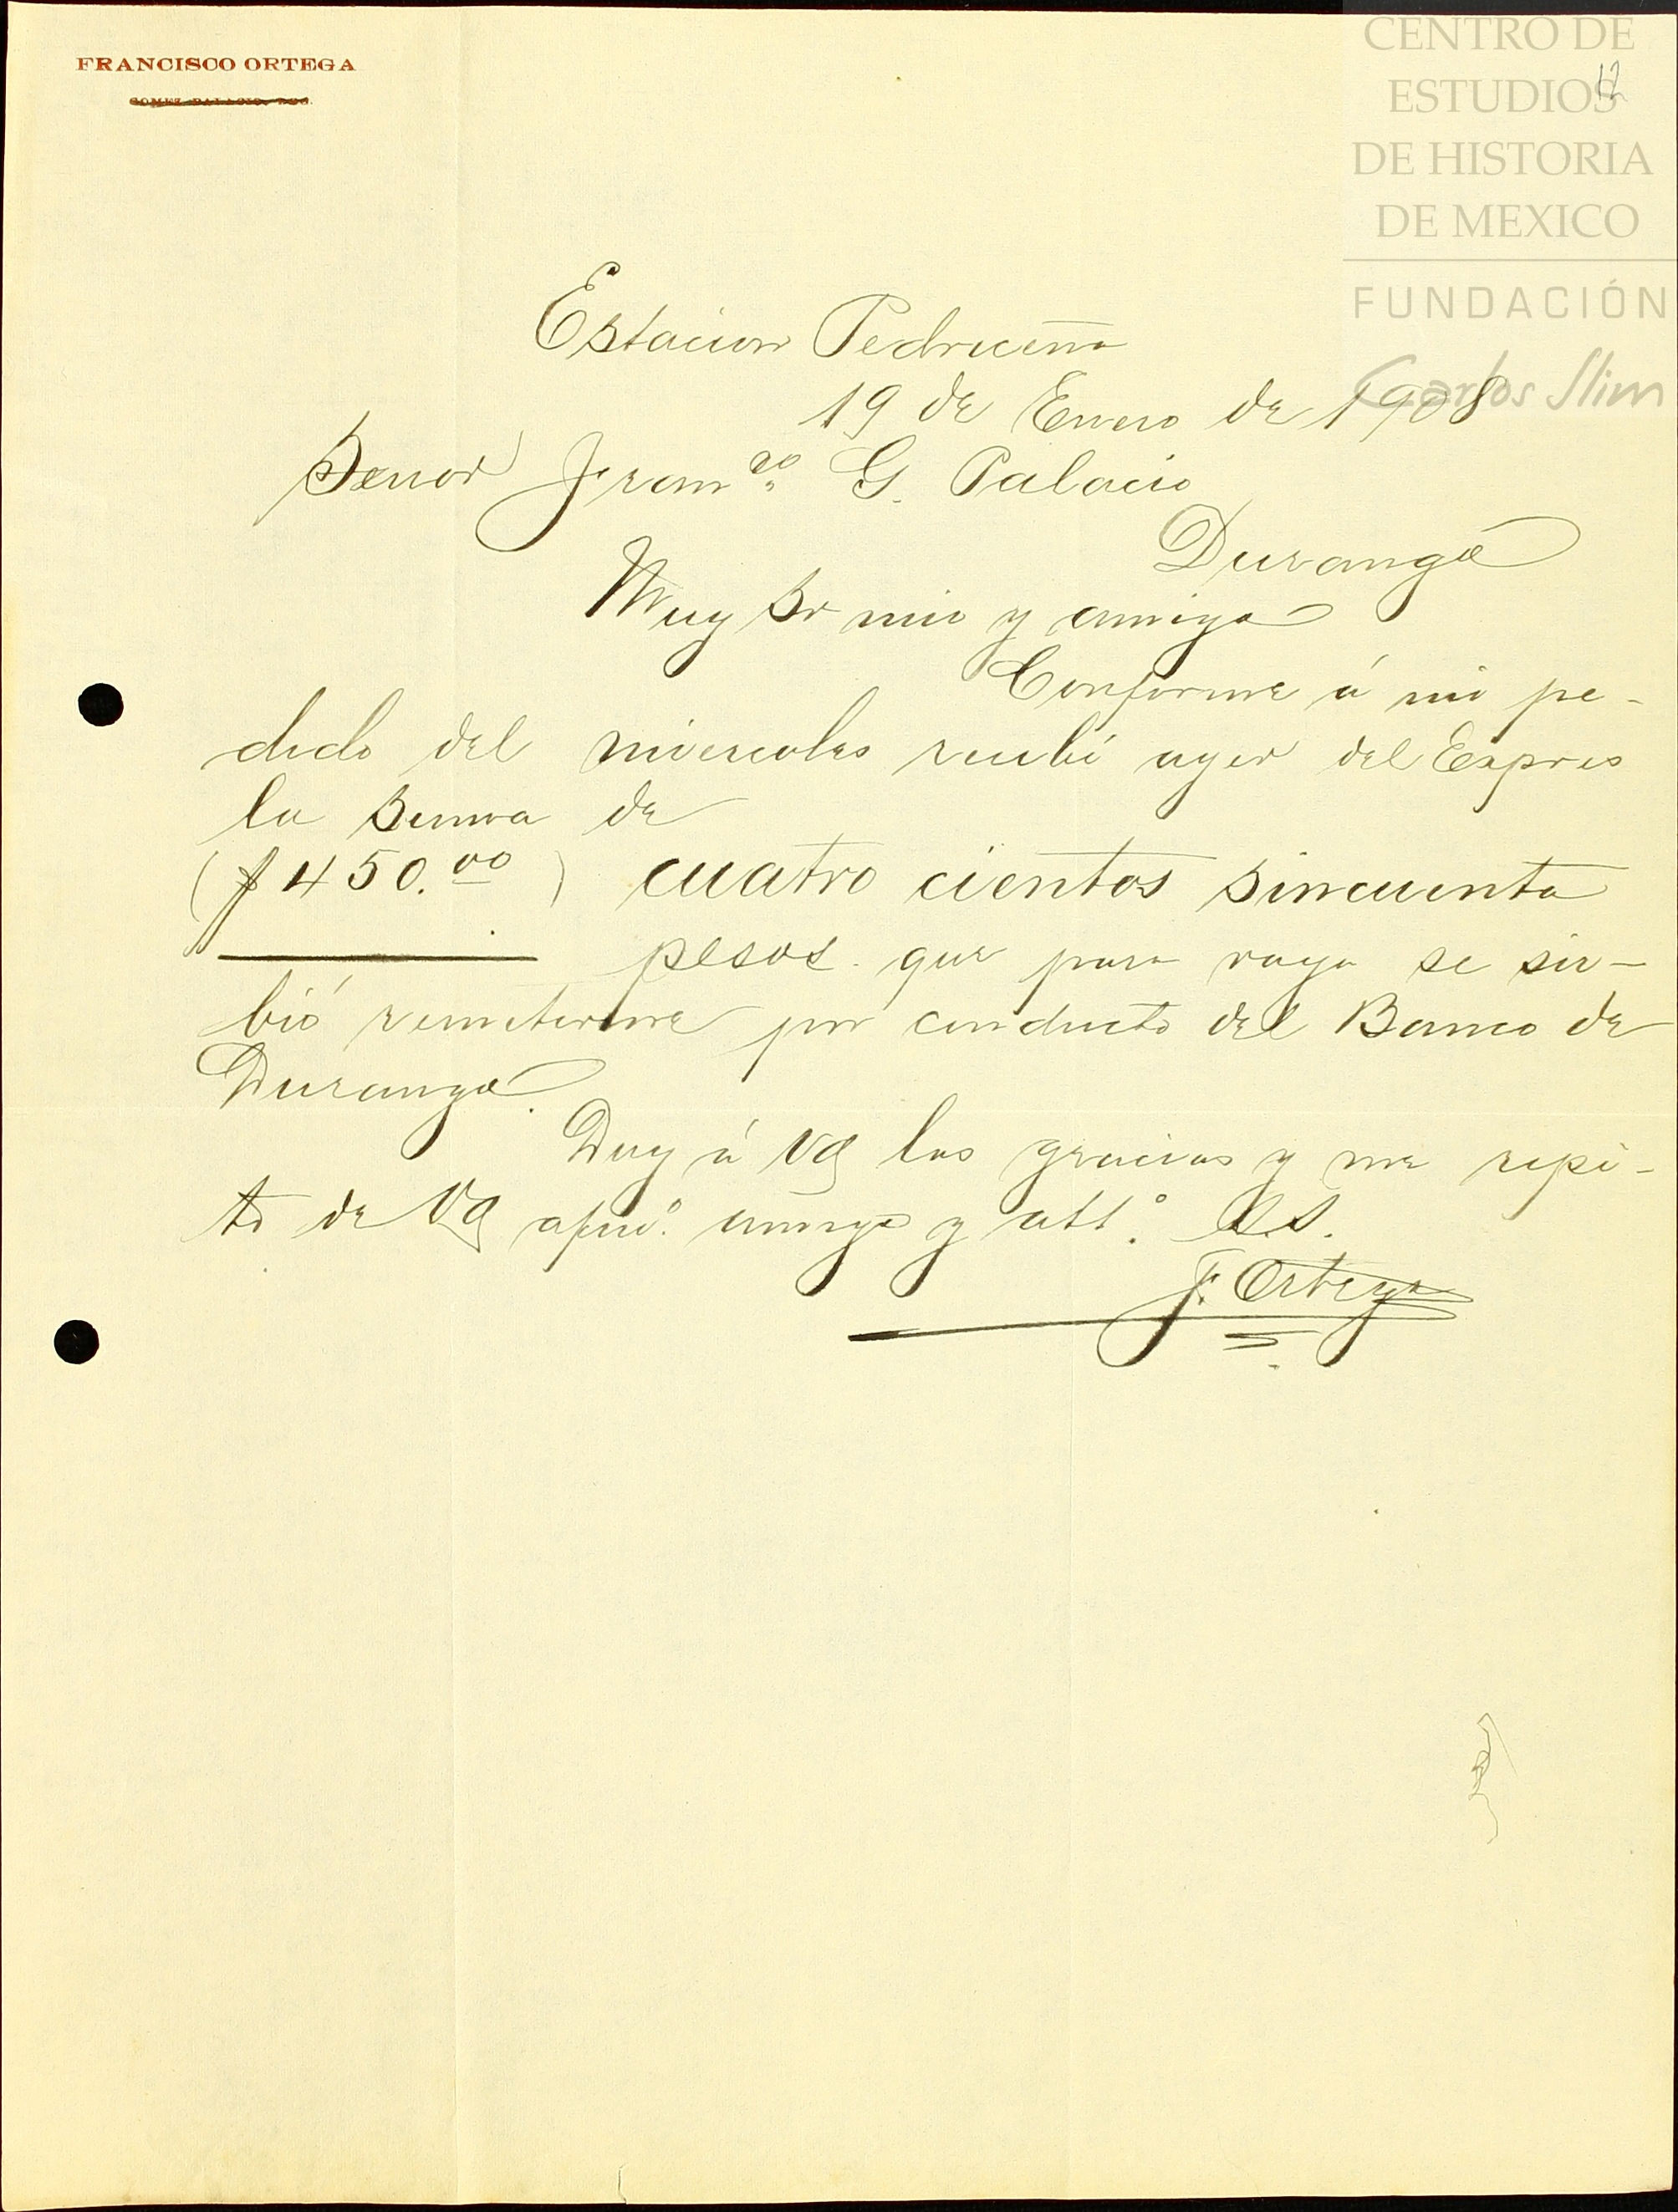 FRANCISCO ORTEGA
GOMEZ PALACIO, DGO.
CENTRO DE
ESTUDIOS
DE HISTORIA
DE MEXICO
FUNDACIÓN
Carlos Slim
12
Estacion Pedriceña
19 de Enero de 1908
Senor Franco. G. Palacio
Durango
Muy Sr mio y amigo
Conforme á mi pe-
dido del miercoles recibí ayer del Expres
la Suma de
($450.00) cuatro cientos sincuenta
pesos que para raya se sir-
bió remeterme por conducto del Banco de
Durango.
Doy á Vd las gracias y me repi-
to de Vd afmo. amigo y att.º S.S.
F. Ortega